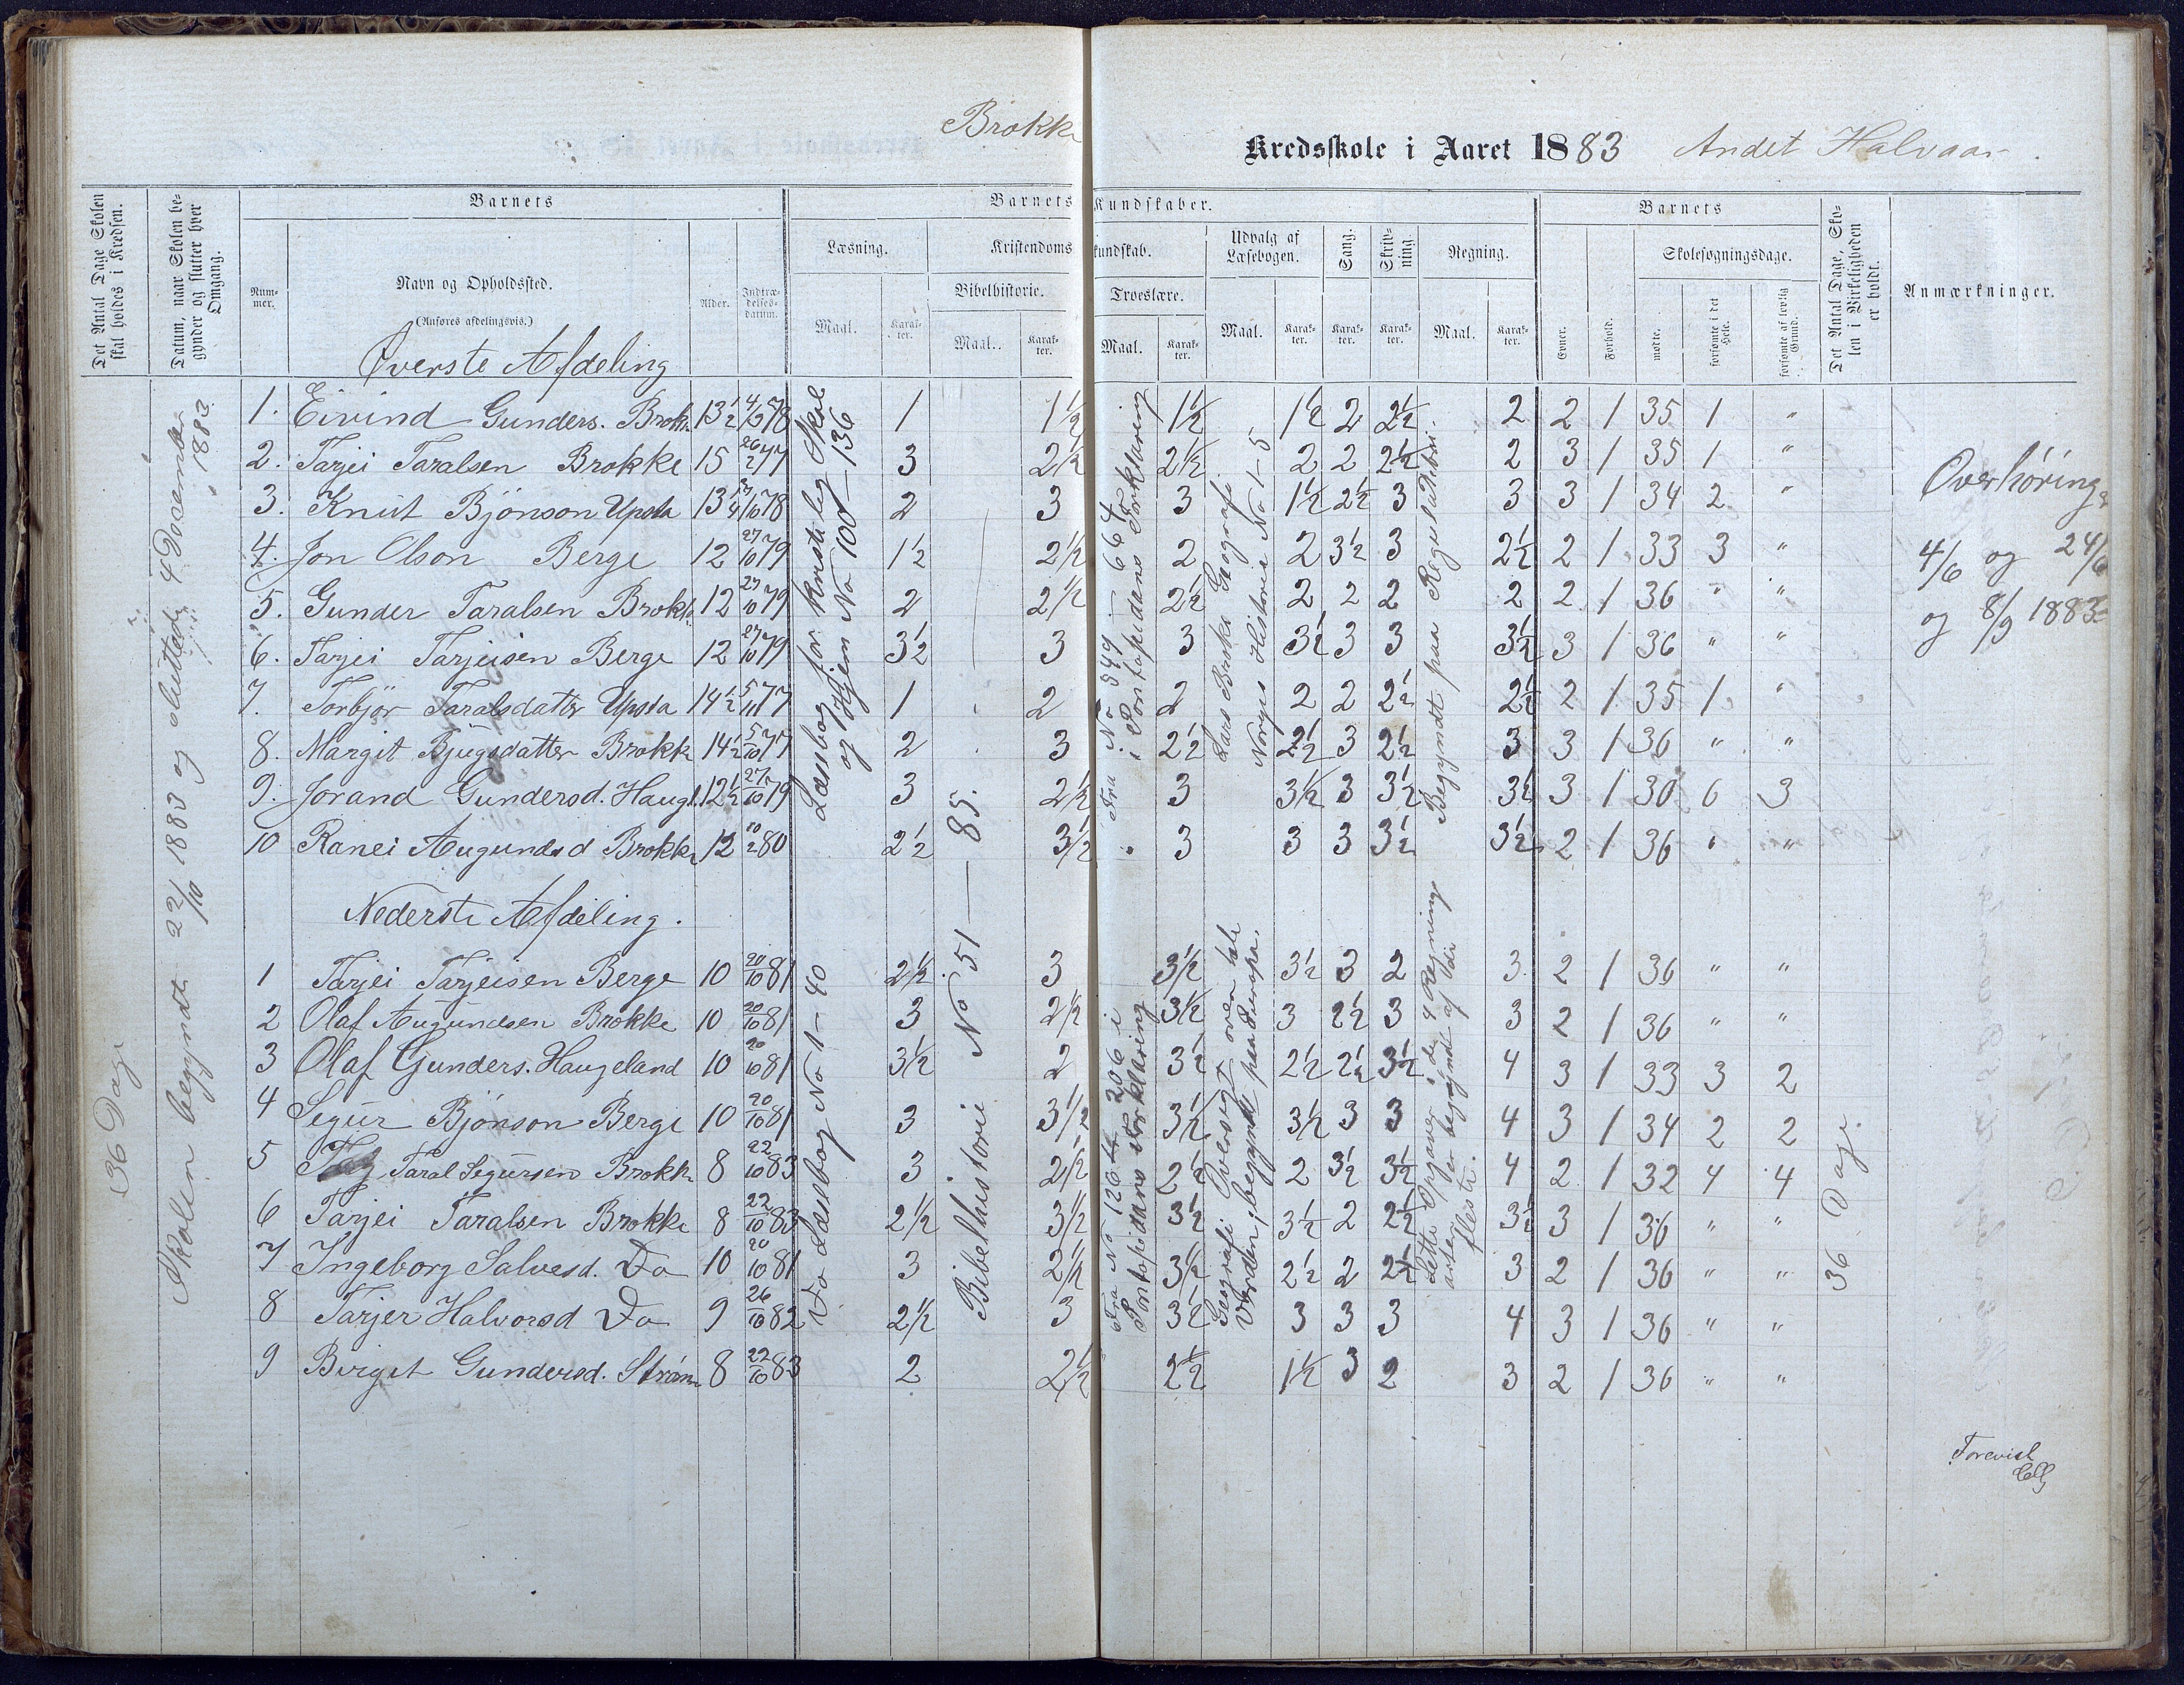 Brokke Kredsskole i Aaret 1883 Andet Halvaar
Det Antal Dage Skolen skal holdes i Kredsen.
Datum, naar Skolen begynder og slutter hver Omgang.
Barnets
Nummer.
Navn og Opholdssted.
(Anføres afdelingsvis.)
Alder.
Indtrædelsesdatum.
Barnets Kundskaber.
Læsning.
Maal.
Karakter.
Kristendomskundskab.
Bibelhistorie.
Maal.
Karakter.
Troeslære.
Maal.
Karakter.
Udvalg af Læsebogen.
Maal.
Karakter.
Sang.
Karakter.
Skrivning.
Karakter.
Regning.
Maal.
Karakter.
Barnets
Evner.
Forhold.
Skolesøgningsdage.
mødte.
forsømte i det Hele.
forsømte af lovlig Grund.
Det Antal Dage, Skolen i Virkeligheden er holdt.
Anmærkninger.
36 Dage
Skolen begyndte 22/10 1883 og sluttede 4 December 1883
Øverste Afdeling
1. Eivind Gunders. Brokk. 13½ 4/2 78 1 1½ 1½ 1½ 2 2½ 2 2 1 35 1 "
2. Tarjei Taralsen Brokke 15 26/2 77 3 2½ 2½ 2 2 2½ 2 3 1 35 1 "
3. Knut Bjönson Upsta 13¼ 27/10 78 2 3 3 1½ 2½ 3 3 3 1 34 2 "
4. Jon Olson Berge 12 27/10 79 1½ 2½ 2 2 3½ 3 2½ 2 1 33 3 "
5. Gunder Taralsen Brokk. 12 27/10 79 2 2½ 2½ 2 2 2 2 2 1 36 " "
6. Tarjei Tarjeisen Berge 12 27/10 79 3½ 3 3 3½ 3 3 3½ 3 1 36 " "
7. Torbjør Taralsdatter Upsta 14½ 5/11 77 1 2 2 2 2 2½ 2½ 2 1 35 1 "
8. Margit Bjugsdatter Brokk 14½ 5/10 77 2 3 2½ 2½ 3 2½ 3 3 1 36 " "
9. Jorand Gundersd. Haugl. 12½ 27/10 79 3 2½ 3 3½ 3 3½ 3½ 3 1 30 6 3
10 Ranei Augundsd Brokke 12 80 2½ 3½ 3 3 3 3½ 3½ 2 1 36 " "
Læsebog for Kristelig Skole
og Hjem No 100 — 136
Fra No 549 — 664
i Pontopidans Forklaring
Lars Breks Geografi.
Norges Historie No 1-5
Begyndt paa Reguladetri.
Overhøring
4/6 og 24/6
og 8/9 1883
Nederste Afdeling.
1 Tarjei Tarjeisen Berge 10 20/10 81 2½ 3 3½ 3½ 3 2 3 2 1 36 " "
2 Olaf Augundsen Brokke 10 20/10 81 3 2½ 3½ 3 2½ 3 3 2 1 36 " "
3 Olaf Gunders. Haugeland 10 20/10 81 3½ 2 3½ 2½ 2½ 3½ 4 3 1 33 3 2
4 Segur Bjönson Berge 10 20/10 81 3 3½ 3½ 3½ 3 3 4 3 1 34 2 2
5 Taral Segursen Brokk. 8 22/10 83 3 2½ 2½ 2 3½ 3½ 4 2 1 32 4 4
6 Tarjei Taralsen Brokke 8 22/10 83 2½ 3½ 3½ 3½ 2 2½ 3½ 3 1 36 " "
7 Ingeborg Salvesd. Do 10 20/10 81 3 2½ 3½ 2½ 2 2½ 3 2 1 36 " "
8 Tarjer Halvorsd Do 9 26/10 82 2½ 3 3½ 3 3 3 4 3 1 36 " "
9 Birgit Gundersd. Strøm 8 22/10 83 2 2½ 2½ 1½ 3 2 3 2 1 36 " "
Do Læsebog No 1 — 40
Bibelhistorie No 51 — 85.
Fra No 126 til 206 i
Pontopidans Forklaring
Geografi Oversigt over hele
Verden, begyndt paa Europa.
Lette Opgaver i de 4 Regnings
arter begyndt af de
fleste.
36 Dage.
Forevist